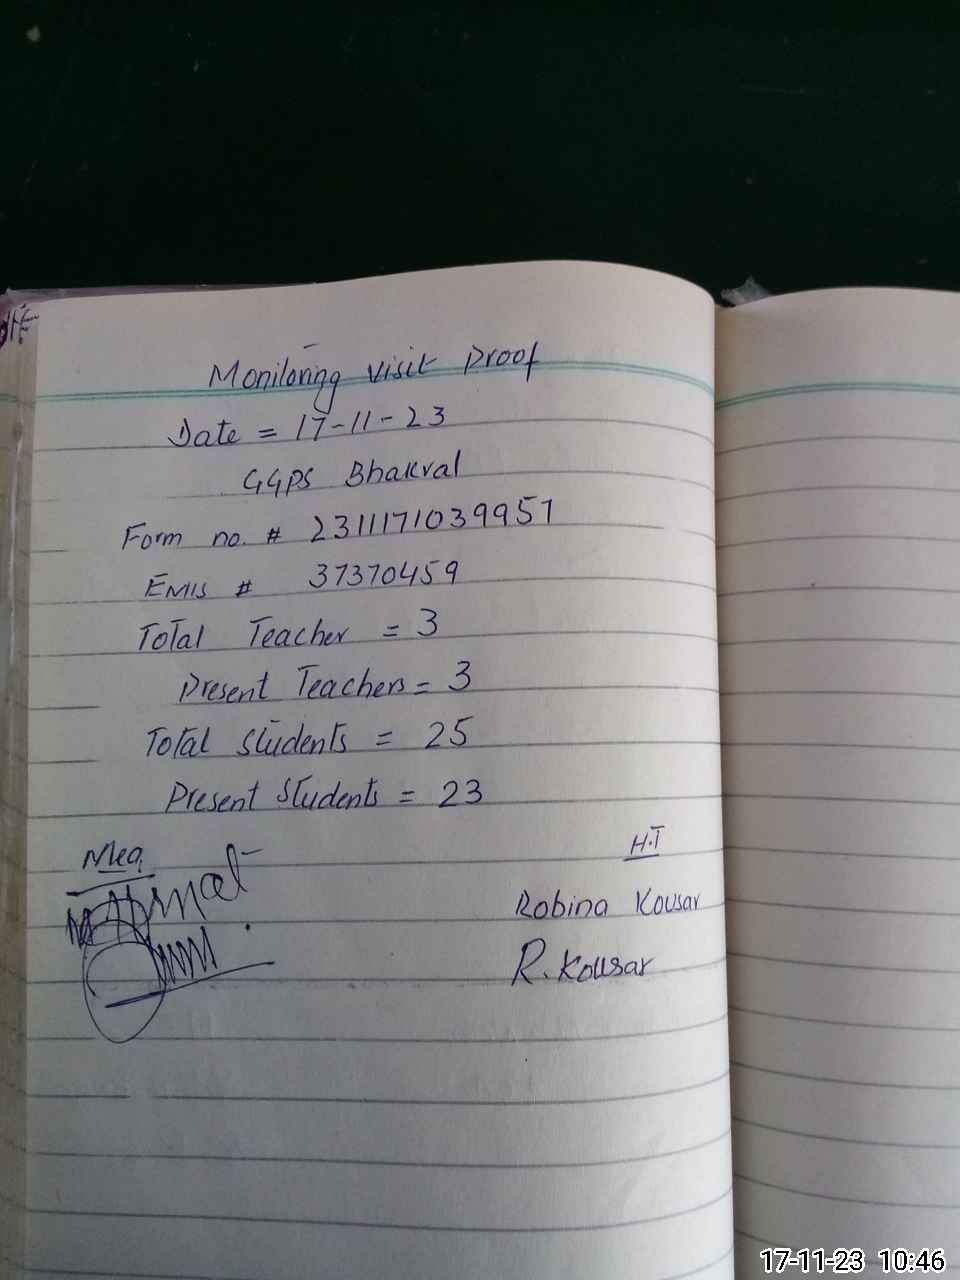 Monitoring Visit Proof
Date = 17-11-23
GGPS Bhakral
Form no. # 2311171039951
EMIS # 37370459
Total Teacher = 3
Present Teachers = 3
Total Students = 25
Present Students = 23
Mea
H.T
Robina Kousar
R. Kousar
17-11-23 10:46